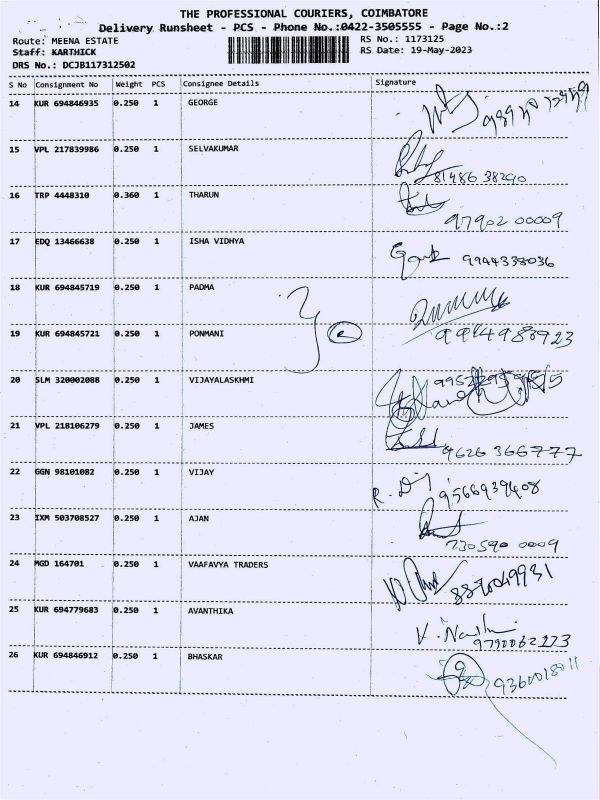 THE PROFESSIONAL COURIERS, COIMBATORE
Delivery Runsheet - PCS - Phone No.:0422-3505555 - Page No.:2
Route: MEENA ESTATE RS No.: 1173125
Staff: KARTHICK RS Date: 19-May-2023
DRS No.: DCJB117312502
S No Consignment No Weight PCS Consignee Details Signature
14 KUR 694846935 0.250 1 GEORGE
15 VPL 217839986 0.250 1 SELVAKUMAR
81486 38290
16 TRP 4448310 0.360 1 THARUN
97902 00009
17 EDQ 13466638 0.250 1 ISHA VIDHYA 9944338036
18 KUR 694845719 0.250 1 PADMA
19 KUR 694845721 0.250 1 PONMANI 9994980923
20 SLM 320002088 0.250 1 VIJAYALASKHMI
21 VPL 218106279 0.250 1 JAMES
9626 366777
22 GGN 98101082 0.250 1 VIJAY 9566939408
23 IXM 503708527 0.250 1 AJAN
730590 0009
24 MGD 164701 0.250 1 VAAFAVYA TRADERS
25 KUR 694779683 0.250 1 AVANTHIKA
26 KUR 694846912 0.250 1 BHASKAR